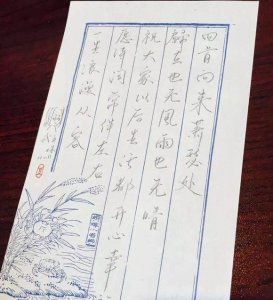 回首向来萧瑟处
归去也无风雨也无晴
祝大家以后生活都开心幸
愿诗词常伴左右
一生浪漫从容